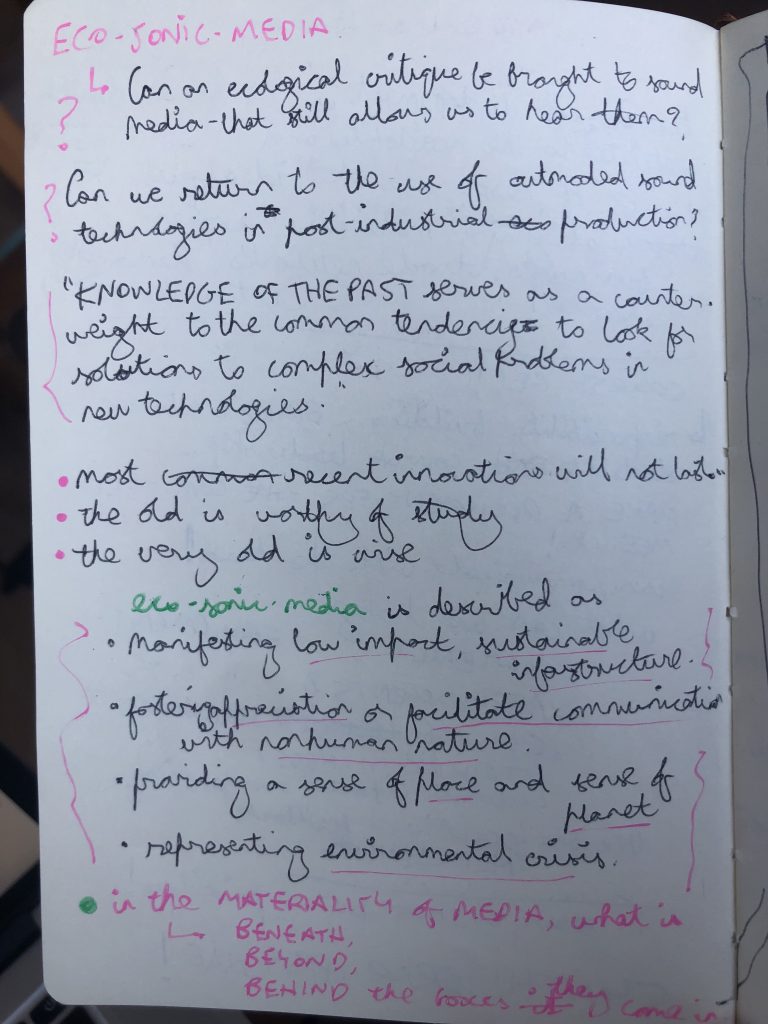 ECO-SONIC-MEDIA
↳ Can an ecological critique be brought to sound
? media - that still allows us to hear them?
? Can we return to the use of outmoded sound
technologies in post-industrial eco production?
"KNOWLEDGE OF THE PAST serves as a counter.
weight to the common tendencies to look for
solutions to complex social problems in
new technologies."
• most common recent innovations will not last..
• the old is worthy of study
• the very old is wise
eco-sonic-media is described as
• manifesting low impact, sustainable
infastructure.
• fostering appreciation or facilitate communication
with nonhuman nature.
• providing a sense of place and sense of
planet
• representing environmental crisis.
• in the MATERIALITY of MEDIA, what is
↳ BENEATH,
BEYOND,
BEHIND the boxes they come in